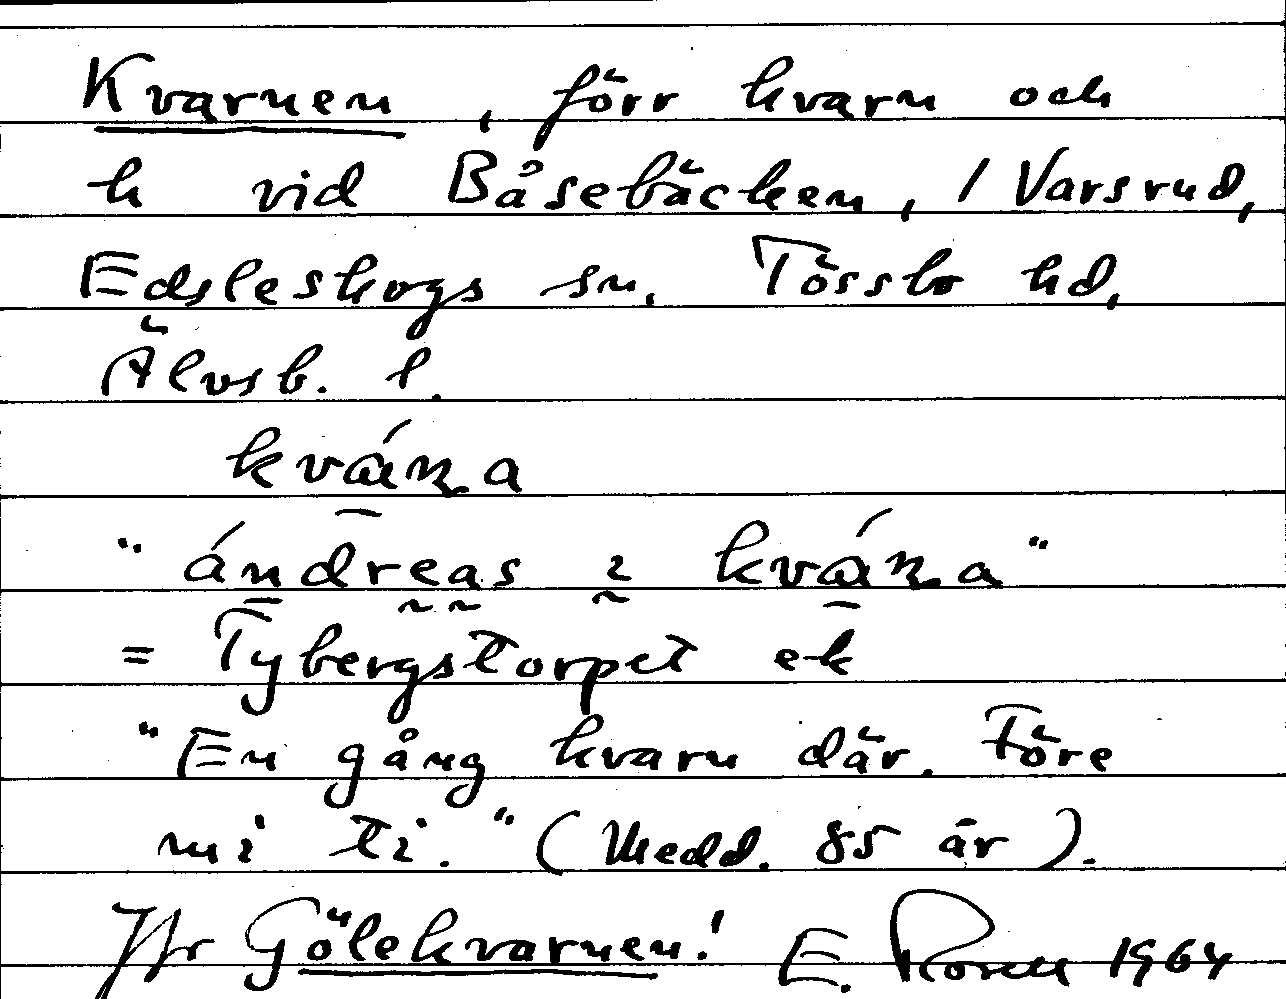 Kvarnen, förr kvarn och
h vid Båsebäcken, / Varsrud,
Edsleskogs sn. Tössbo hd,
Älvsb. l.
kvána
"ándreas ı kvána"
= Tybergstorpet ek
"En gång kvarn där. Före
mi ti." (Medd. 85 år).
Jfr Gölekvarnen! E. Rosell 1964